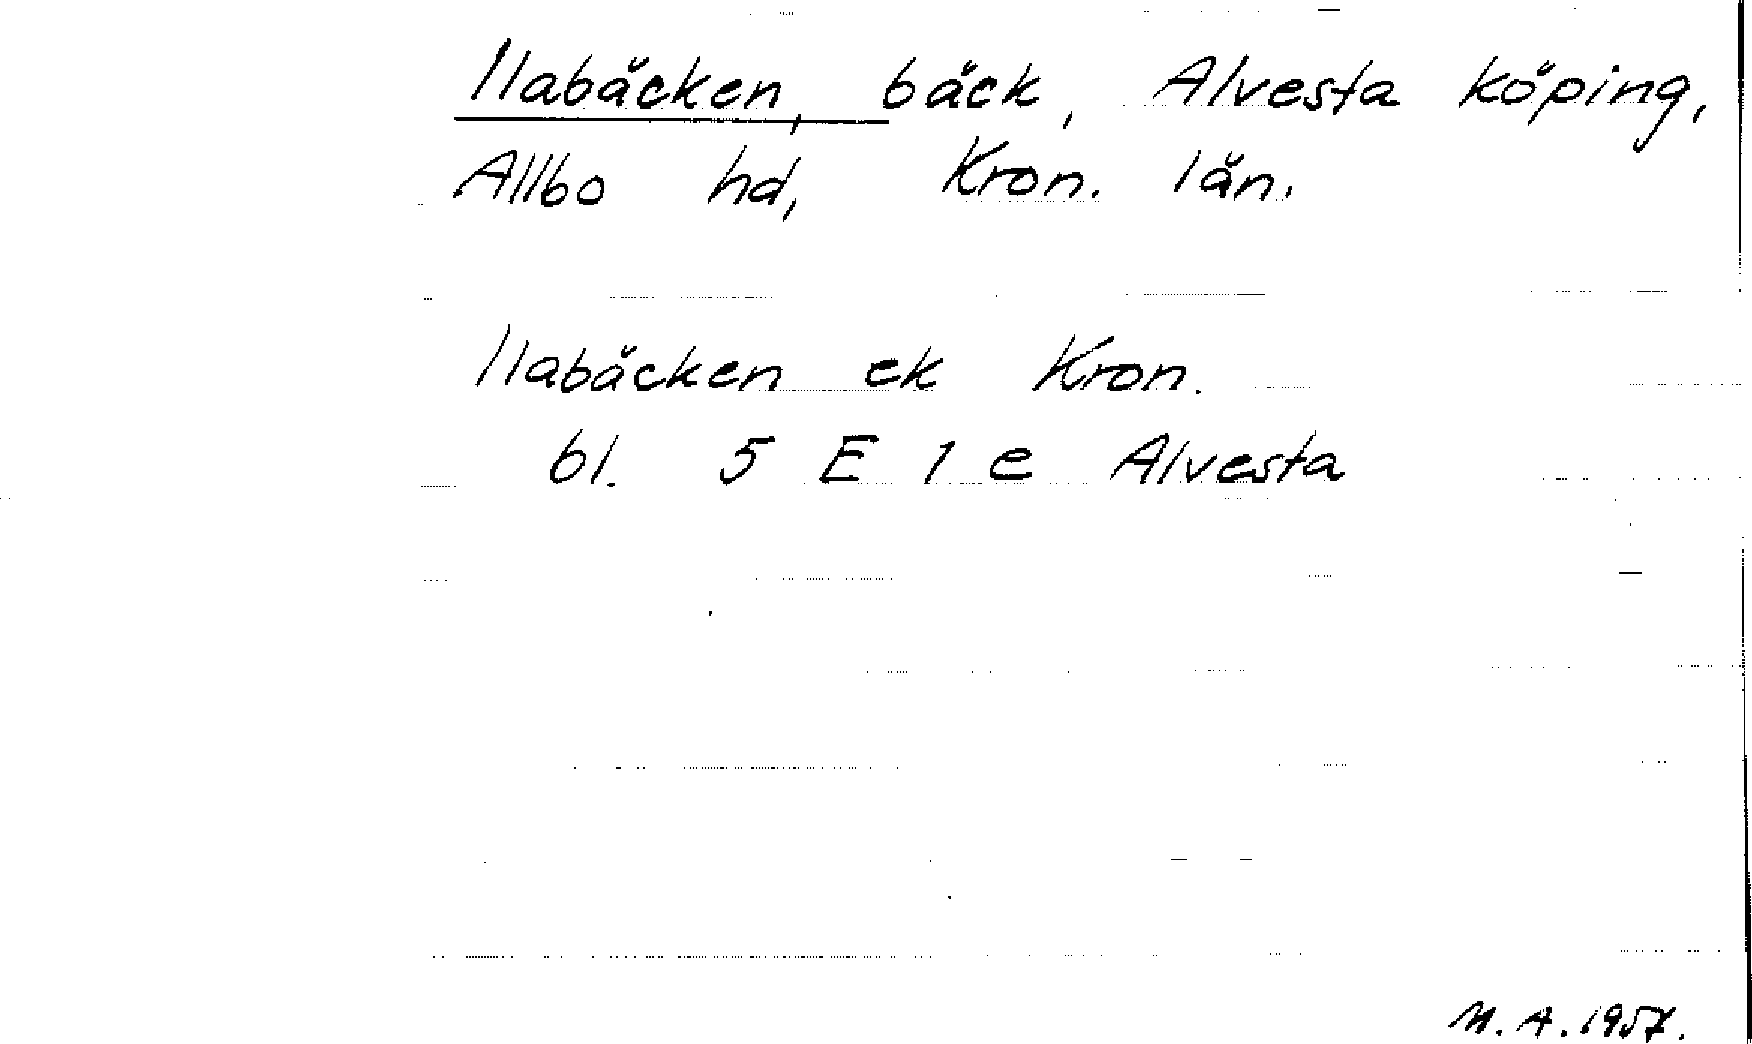 Ilabäcken, bäck, Alvesta köping,
Allbo hd, Kron. län.
Ilabäcken ek Kron.
bl. 5 E 1 e Alvesta
M. A. 1957.